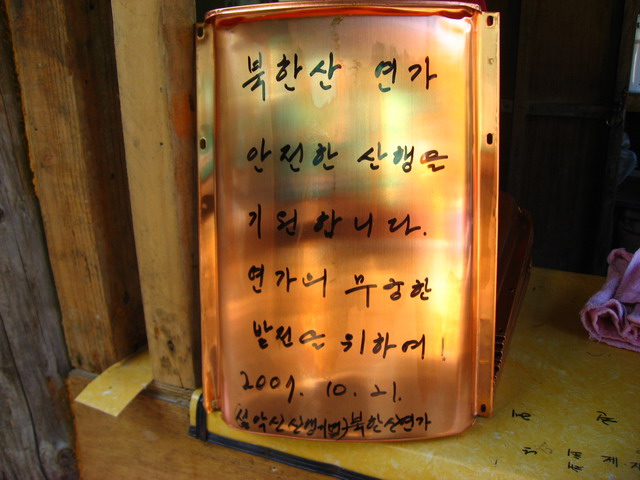 북한산 연가
안전한 산행을
기원합니다.
연가의 무궁한
발전을 위하여!
2007. 10. 21.
북한산연가